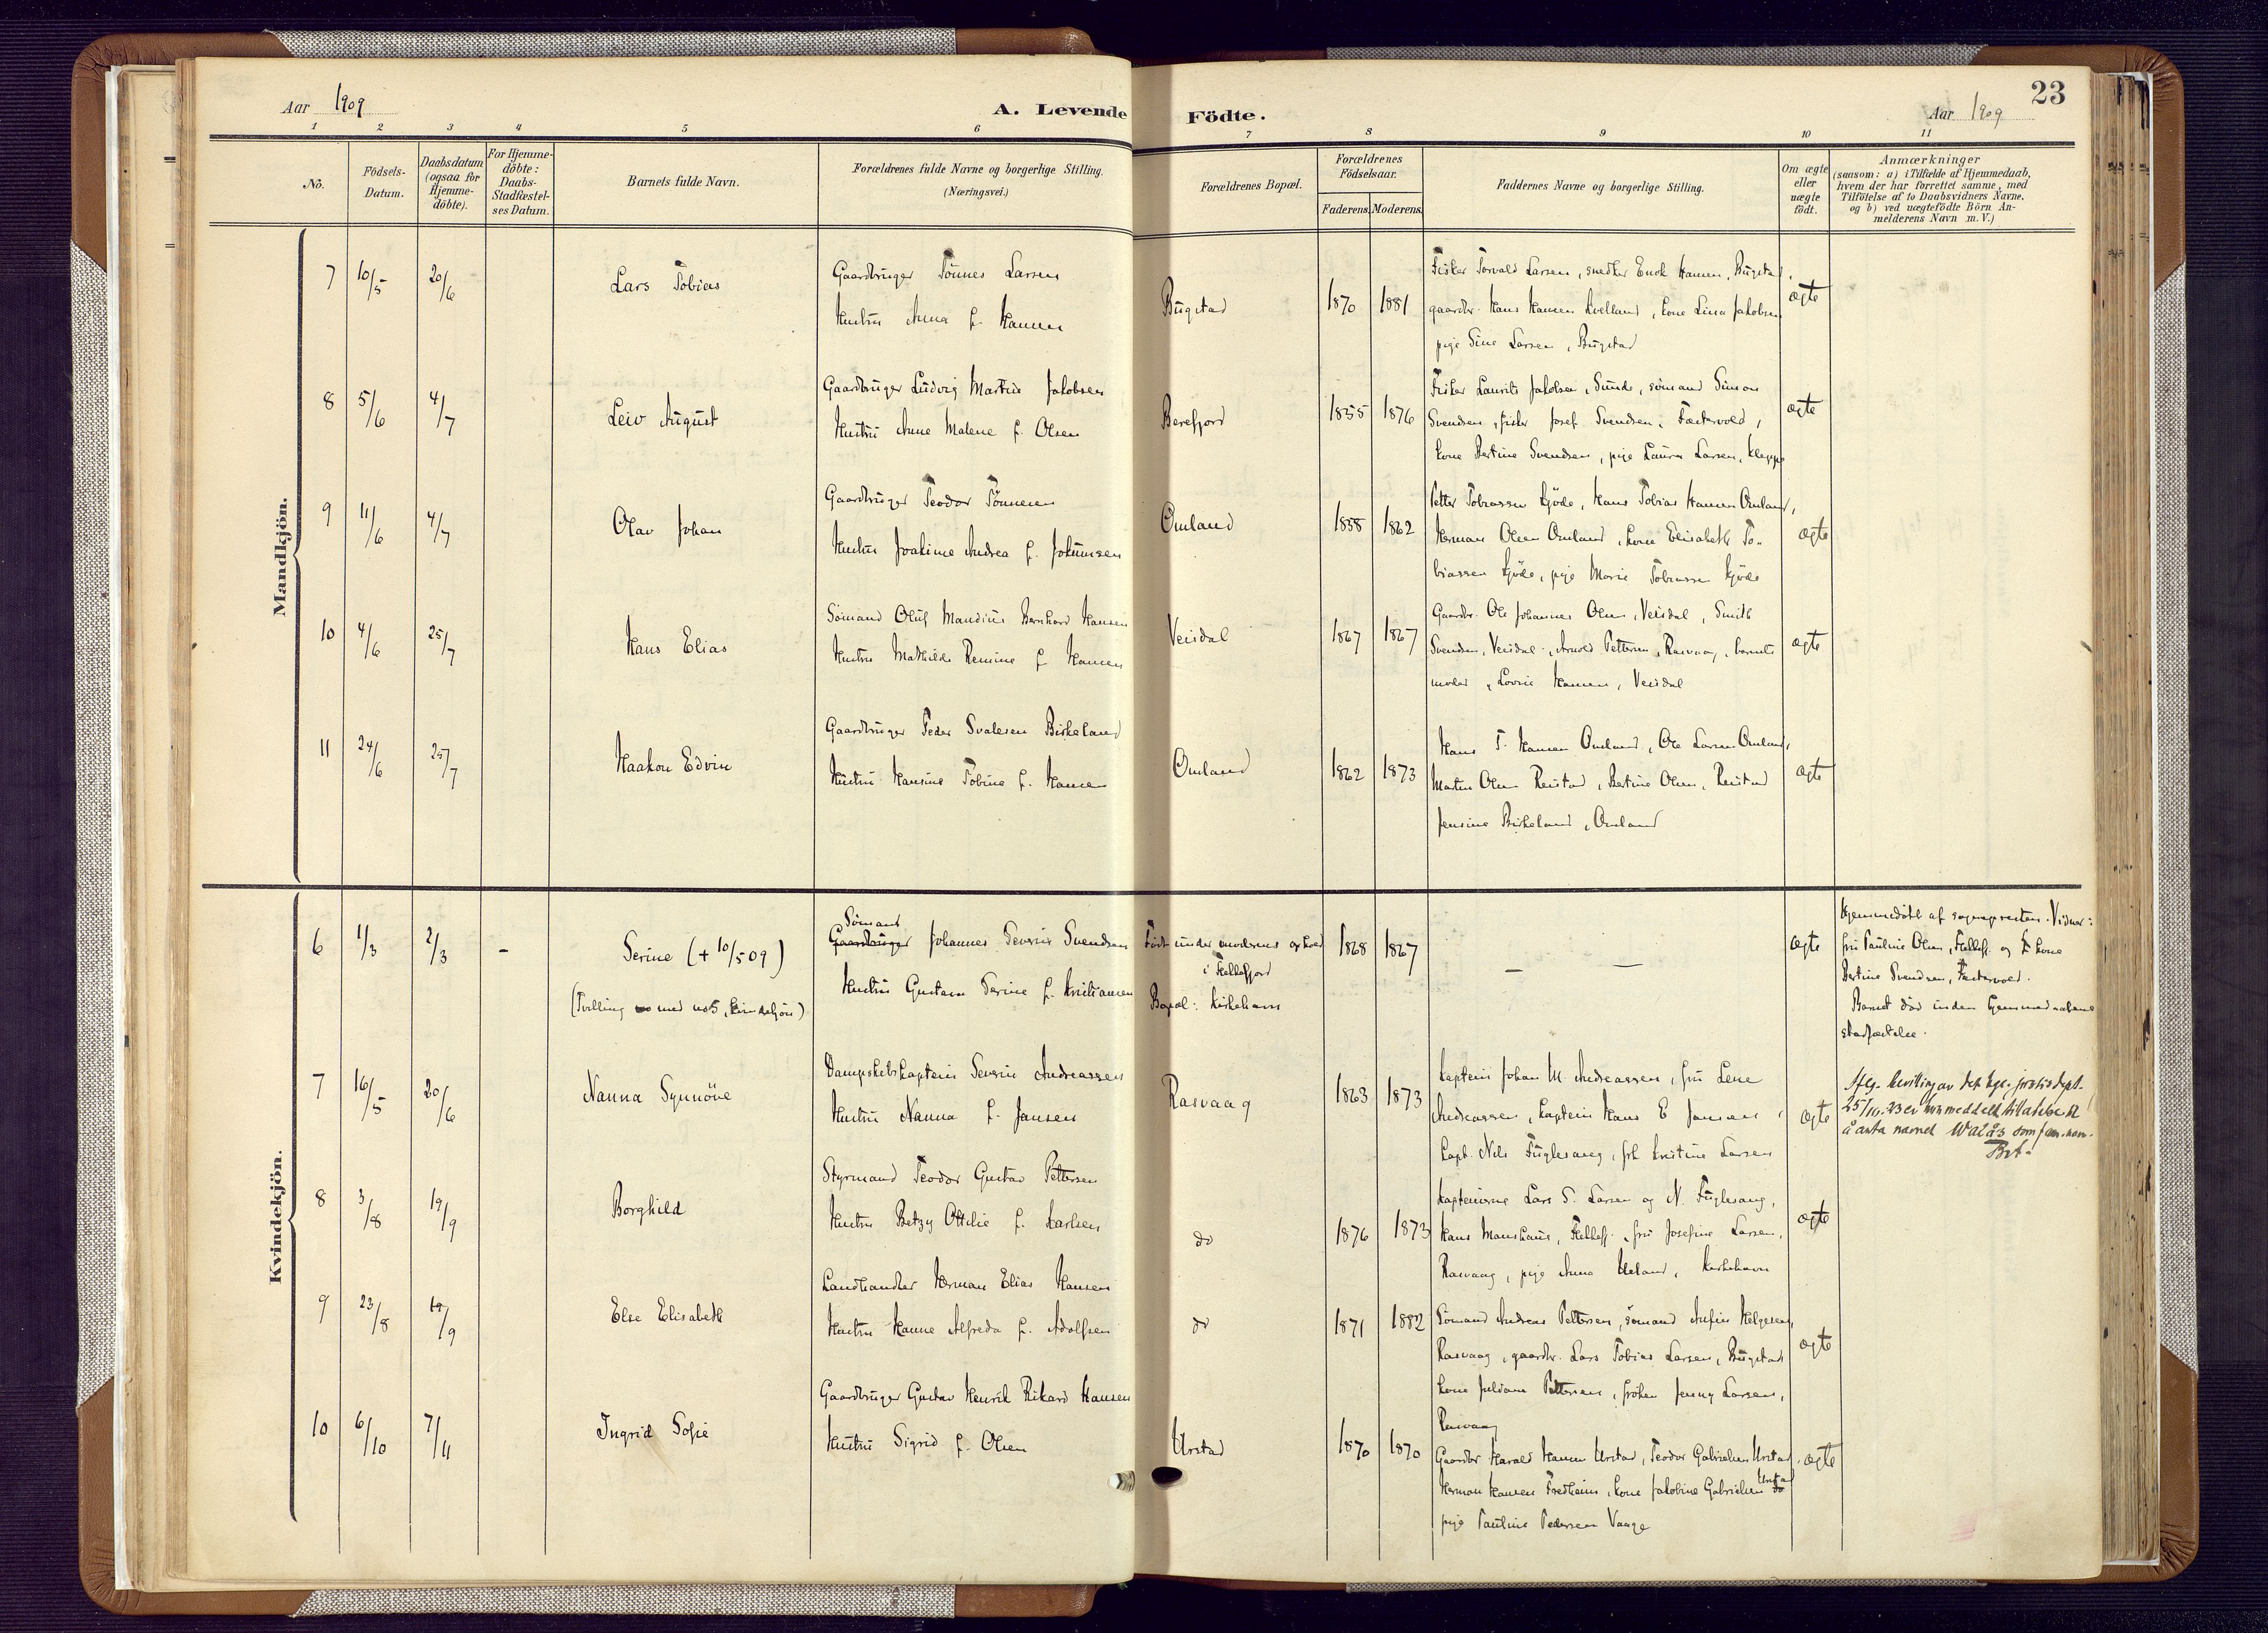 Aar 1909
A. Levende Födte.
Aar 1909
23
1 2 3 4 5 6 7 8 9 10 11
No.
Födsels-Datum.
Daabsdatum (ogsaa for Hjemme-döbte).
For Hjemme-döbte: Daabs-Stadfæstel-ses Datum.
Barnets fulde Navn.
Forældrenes fulde Navne og borgerlige Stilling.
(Næringsvei.)
Forældrenes Bopæl.
Forældrenes Födselsaar.
Faderens. Moderens.
Faddernes Navne og borgerlige Stilling.
Om ægte eller uægte födt.
Anmærkninger
(saasom: a) i Tilfælde af Hjemmedaab,
hvem der har forrettet samme, med
Tilföielse af to Daabsvidners Navne,
og b) ved uægtefödte Börn An-
melderens Navn m. V.)
Mandkjön.
7 10/5 20/6 Lars Tobias
Gaardbruger Tönnes Larsen
Hustru Anna f. Hansen
Bugstad 1870 1881
Fisker Torvald Larsen, snedker Enok Hansen, Bugstad,
gaardbr. Hans Hansen Kvelland, kone Lina Jakobsen
pige Sine Larsen, Bugstad
ægte
8 5/6 4/7 Leiv August
Gaardbruger Ludvig Martin Jakobsen
Hustru Anne Malene f. Olsen
Berefjord 1855 1876
Fisker Laurits Jakobsen, Sunde, sömand Simon
Svendsen, fisker Josef Svendsen, Festervold,
kone Bertine Svendsen, pige Laura Larsen, Kleppe
ægte
9 11/6 4/7 Olav Johan
Gaardbruger Teodor Tönnesen
Hustru Joakime Andrea f. Jokumsen
Omland 1858 1862
Petter Tobiassen Kjöde, Hans Tobias Hansen Omland,
Herman Olsen Omland, kone Elisabeth To-
biassen Kjöde, pige Marie Tobiassen Kjöde
ægte
10 4/6 25/7 Hans Elias
Sömand Oluf Mandius Bernhard Hansen
Hustru Mathilde Remine f. Hansen
Veisdal 1867 1867
Gaardbr. Ole Johannes Olsen, Veisdal, Smith
Svendsen, Veisdal, Arnold Pettersen, Rasvaag, barnets
moder, Lovise Hansen, Veisdal
ægte
11 24/6 25/7 Haakon Edvin
Gaardbruger Peder Svalesen Birkeland
Hustru Hansine Tobine f. Hansen
Omland 1862 1873
Hans T. Hansen Omland, Ole Larsen Omland,
Martin Olsen Reistad, Bertine Olsen, Reistad
Jensine Birkeland, Omland
ægte
Kvindekjön.
6 1/3 2/3 - Serine (+ 10/5 09)
(Tvilling med no 5, kvindekjön)
Sömand
Gaardbruger Johannes Severin Svendsen
Hustru Gustava Serine f. Kristiansen
Födt under moderens ophold
i Fellefjord
Bopæl: Kirkehavn
1868 1867
— —
ægte
Hjemmedöbt af sognepresten. Vidner:
fru Pauline Olsen, Fellefj. og kone
Bertine Svendsen, Festervold.
Barnet död inden hjemmedaabens
stadfæstelse.
7 16/5 20/6 Nanna Synnöve
Dampskibskaptein Severin Andreassen
Hustru Nanna f. Jansen
Rasvaag 1863 1873
Kaptein Johan M. Andreassen, fru Lene
Andreassen, kaptein Hans E Jansen,
kapt. Nils Fuglesang, frk Kristine Larsen
ægte
Iflg. bevilling av det kgl. justisdept.
25/10.23 er hun meddelt tillatelse til
å anta navnet Walås som fam.navn.
8 3/8 19/9 Borghild
Styrmand Teodor Gustav Pettersen
Hustru Betzy Ottilie f. Karlsen
do 1876 1873
Kapteinerne Lars S. Larsen og N. Fuglesang,
Hans Monshaus, Fellefj., fru Josefine Larsen,
Rasvaag, pige Anna Ueland, Kirkehavn
ægte
9 23/8 19/9 Else Elisabeth
Landhandler Herman Elias Hansen
Hustru Hanne Alfreda f. Adolfsen
do 1871 1882
Sömand Andreas Pettersen, sömand Anfin Helgesen,
Rasvaag, gaardbr. Lars Tobias Larsen, Bugstad
kone Juliane Pettersen, fröken Jenny Larsen,
Rasvaag
ægte
10 6/10 7/11 Ingrid Sofie
Gaardbruger Gustav Henrik Rikard Hansen
Hustru Sigrid f. Olsen
Urstad 1870 1870
Gaardbr Harald Hansen Urstad, Teodor Gabrielsen Urstad,
Herman Hansen Fredheim, kone Jakobine Gabrielsen Urstad
pige Pauline Pedersen Vaage
ægte